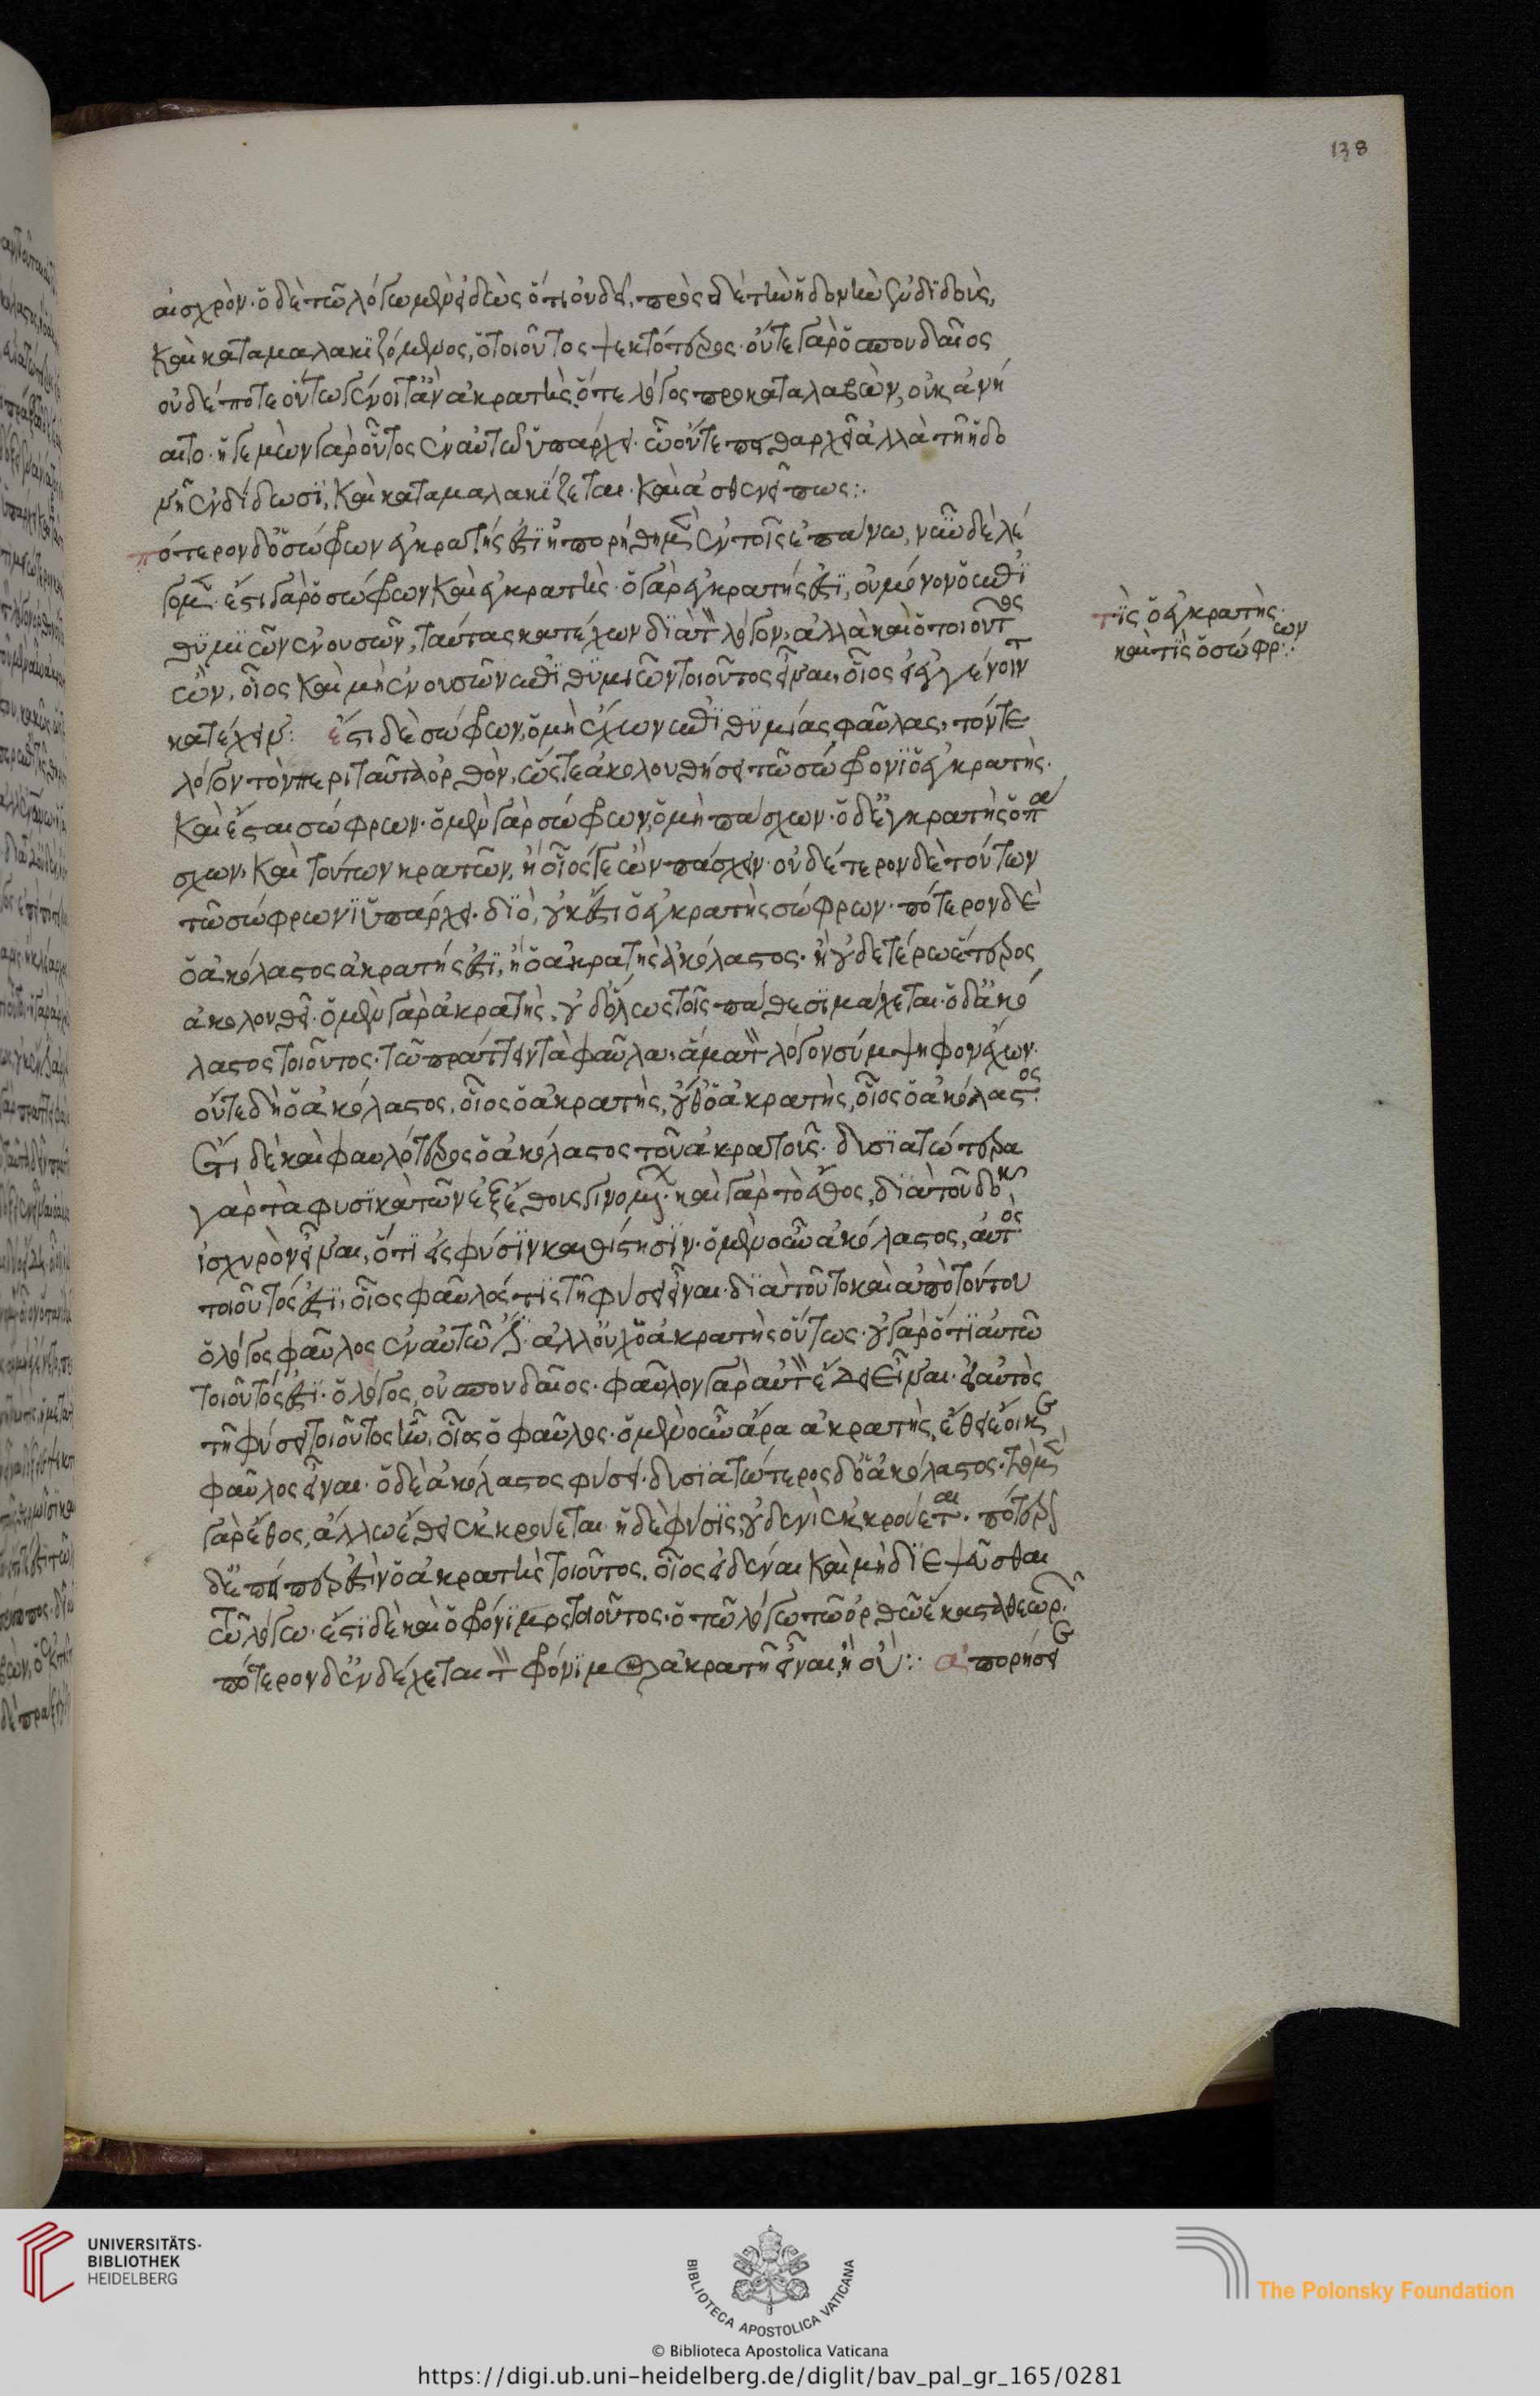 138
αἰσχρὸν· ὁ δὲ τῶ λόγω μὲν εἰδὼς ὅτι οὐ δεῖ, πρὸς δὲ τὴν ἡδονὴν ἐνδιδοὺς,
καὶ καταμαλακιζόμενος, ὁ τοιοῦτος ψεκτότερος· οὔτε γὰρ ὁ σπουδαῖος
οὐδέποτε οὕτω γένοιτ' ἂν ἀκρατὴς· ὅ τε λόγος προκαταλαβὼν, οὐκ ἂν ἡ
αιτο· ἡγεμὼν γὰρ οὗτος ἐν αὐτῶ ὑπάρχει· ὧ οὔτε πειθαρχεῖ ἀλλὰ τῆ ἡδο
νῆ ἐνδίδωσι, καὶ καταμαλακίζεται· καὶ ἀσθενεῖ πως:·
πότερον δ' ὁ σώφρων ἐγκρατής ἐστι ἠπορήθημεν ἐν τοῖς ἐπάνω, νῦν δὲ λέ
γομεν· ἔστι γὰρ ὁ σώφρων καὶ ἐγκρατὴς· ὁ γὰρ ἐγκρατής ἐστι, οὐ μόνον ὁ ἐπι
θυμιῶν ἐνουσῶν, ταύτας κατέχων διὰ τὸν λόγον, ἀλλὰ καὶ ὁ τοιοῦτος
ὢν, οἷος καὶ μὴ ἐνουσῶν ἐπιθυμιῶν τοιοῦτος εἶναι, οἷος εἰ ἐγγένοιντο
κατέχειν: ἔστι δὲ σώφρων, ὁ μὴ ἔχων ἐπιθυμίας φαύλας, τόν τε
λόγον τὸν περὶ ταῦτα ὀρθόν, ὥστε ἀκολουθήσει τῶ σώφρονι ὁ ἐγκρατὴς·
καὶ ἔσται σώφρων· ὁ μὲν γὰρ σώφρων, ὁ μὴ πάσχων· ὁ δ' ἐγκρατὴς ὁ πά
σχων, καὶ τούτων κρατῶν, ἢ οἷός τε ὢν πάσχειν· οὐδέτερον δὲ τούτων
τῶ σώφρωνι ὑπάρχει· διὸ, οὐκ ἔστι ὁ ἐγκρατὴς σώφρων· πότερον δὲ
ὁ ἀκόλαστος ἀκρατής ἐστι, ἢ ὁ ἀκρατὴς ἀκόλαστος· ἢ οὐδετέρω ἕτερος
ἀκολουθεῖ· ὁ μὲν γὰρ ἀκρατὴς, οὐδ' ὅλως τοῖς πάθεσι μάχεται· ὁ δ' ἀκό
λαστος τοιοῦτος· τῶ πράττειν τὰ φαῦλα, ἅμα τὸν λόγον σύμψηφον ἔχων·
οὔτε δὴ ὁ ἀκόλαστος, οἷος ὁ ἀκρατὴς, οὔθ' ὁ ἀκρατὴς, οἷος ὁ ἀκόλαστος·
Ἔτι δὲ καὶ φαυλότερος ὁ ἀκόλαστος τοῦ ἀκρατοῦς· δυσιατώτερα
γὰρ τὰ φυσικὰ τῶν ἐξ ἔθους γινομένων· καὶ γὰρ τὸ ἔθος, διὰ τοῦ δοκεῖ
ἰσχυρὸν εἶναι, ὅτι εἰς φύσιν καθίστησιν· ὁ μὲν οὖν ἀκόλαστος, αὐτὸς
τοιοῦτός ἐστι, οἷος φαῦλός τις τῆ φύσει εἶναι· διὰ τοῦτο καὶ ἀπὸ τούτου
ὁ λόγος φαῦλος ἐν αὐτῶ ἐστι· ἀλλ' οὐχ ὁ ἀκρατὴς οὕτως· οὐ γὰρ ὅτι αὐτῶ
τοιοῦτός ἐστι· ὁ λόγος, οὐ σπουδαῖος· φαῦλον γὰρ αὐτὸν ἔδει εἶναι· εἰ αὐτὸς
τῆ φύσει τοιοῦτος ἦν, οἷος ὁ φαῦλος· ὁ μὲν οὖν ἄρα ἀκρατὴς, ἔθει ἔοικε
φαῦλος εἶναι· ὁ δὲ ἀκόλαστος φύσει· δυσιατώτερος δ' ὁ ἀκόλαστος· τὸ μὲν
γὰρ ἔθος, ἄλλω ἔθει ἐκκρούεται· ἡ δὲ φύσις, οὐδενὶ ἐκκρούεται· πότερον
δ' ἐπείπερ ἐστὶν ὁ ἀκρατὴς τοιοῦτος, οἷος εἰδέναι καὶ μὴ διεψεῦσθαι
τῶ λόγω· ἔστι δὲ καὶ ὁ φρόνιμος τοιοῦτος· ὁ τῶ λόγω τῶ ὀρθῶ ἕκαστα θεωρῶν·
πότερον δ' ἐνδέχεται τὸν φρόνιμον ἀκρατῆ εἶναι, ἢ οὔ:· ἀπορήσειε
τὶς ὁ ἐγκρατὴς
καὶ τὶς ὁ σώφρων:·
UNIVERSITÄTS-
BIBLIOTHEK
HEIDELBERG
BIBLIOTECA APOSTOLICA VATICANA
The Polonsky Foundation
© Biblioteca Apostolica Vaticana
https://digi.ub.uni-heidelberg.de/diglit/bav_pal_gr_165/0281